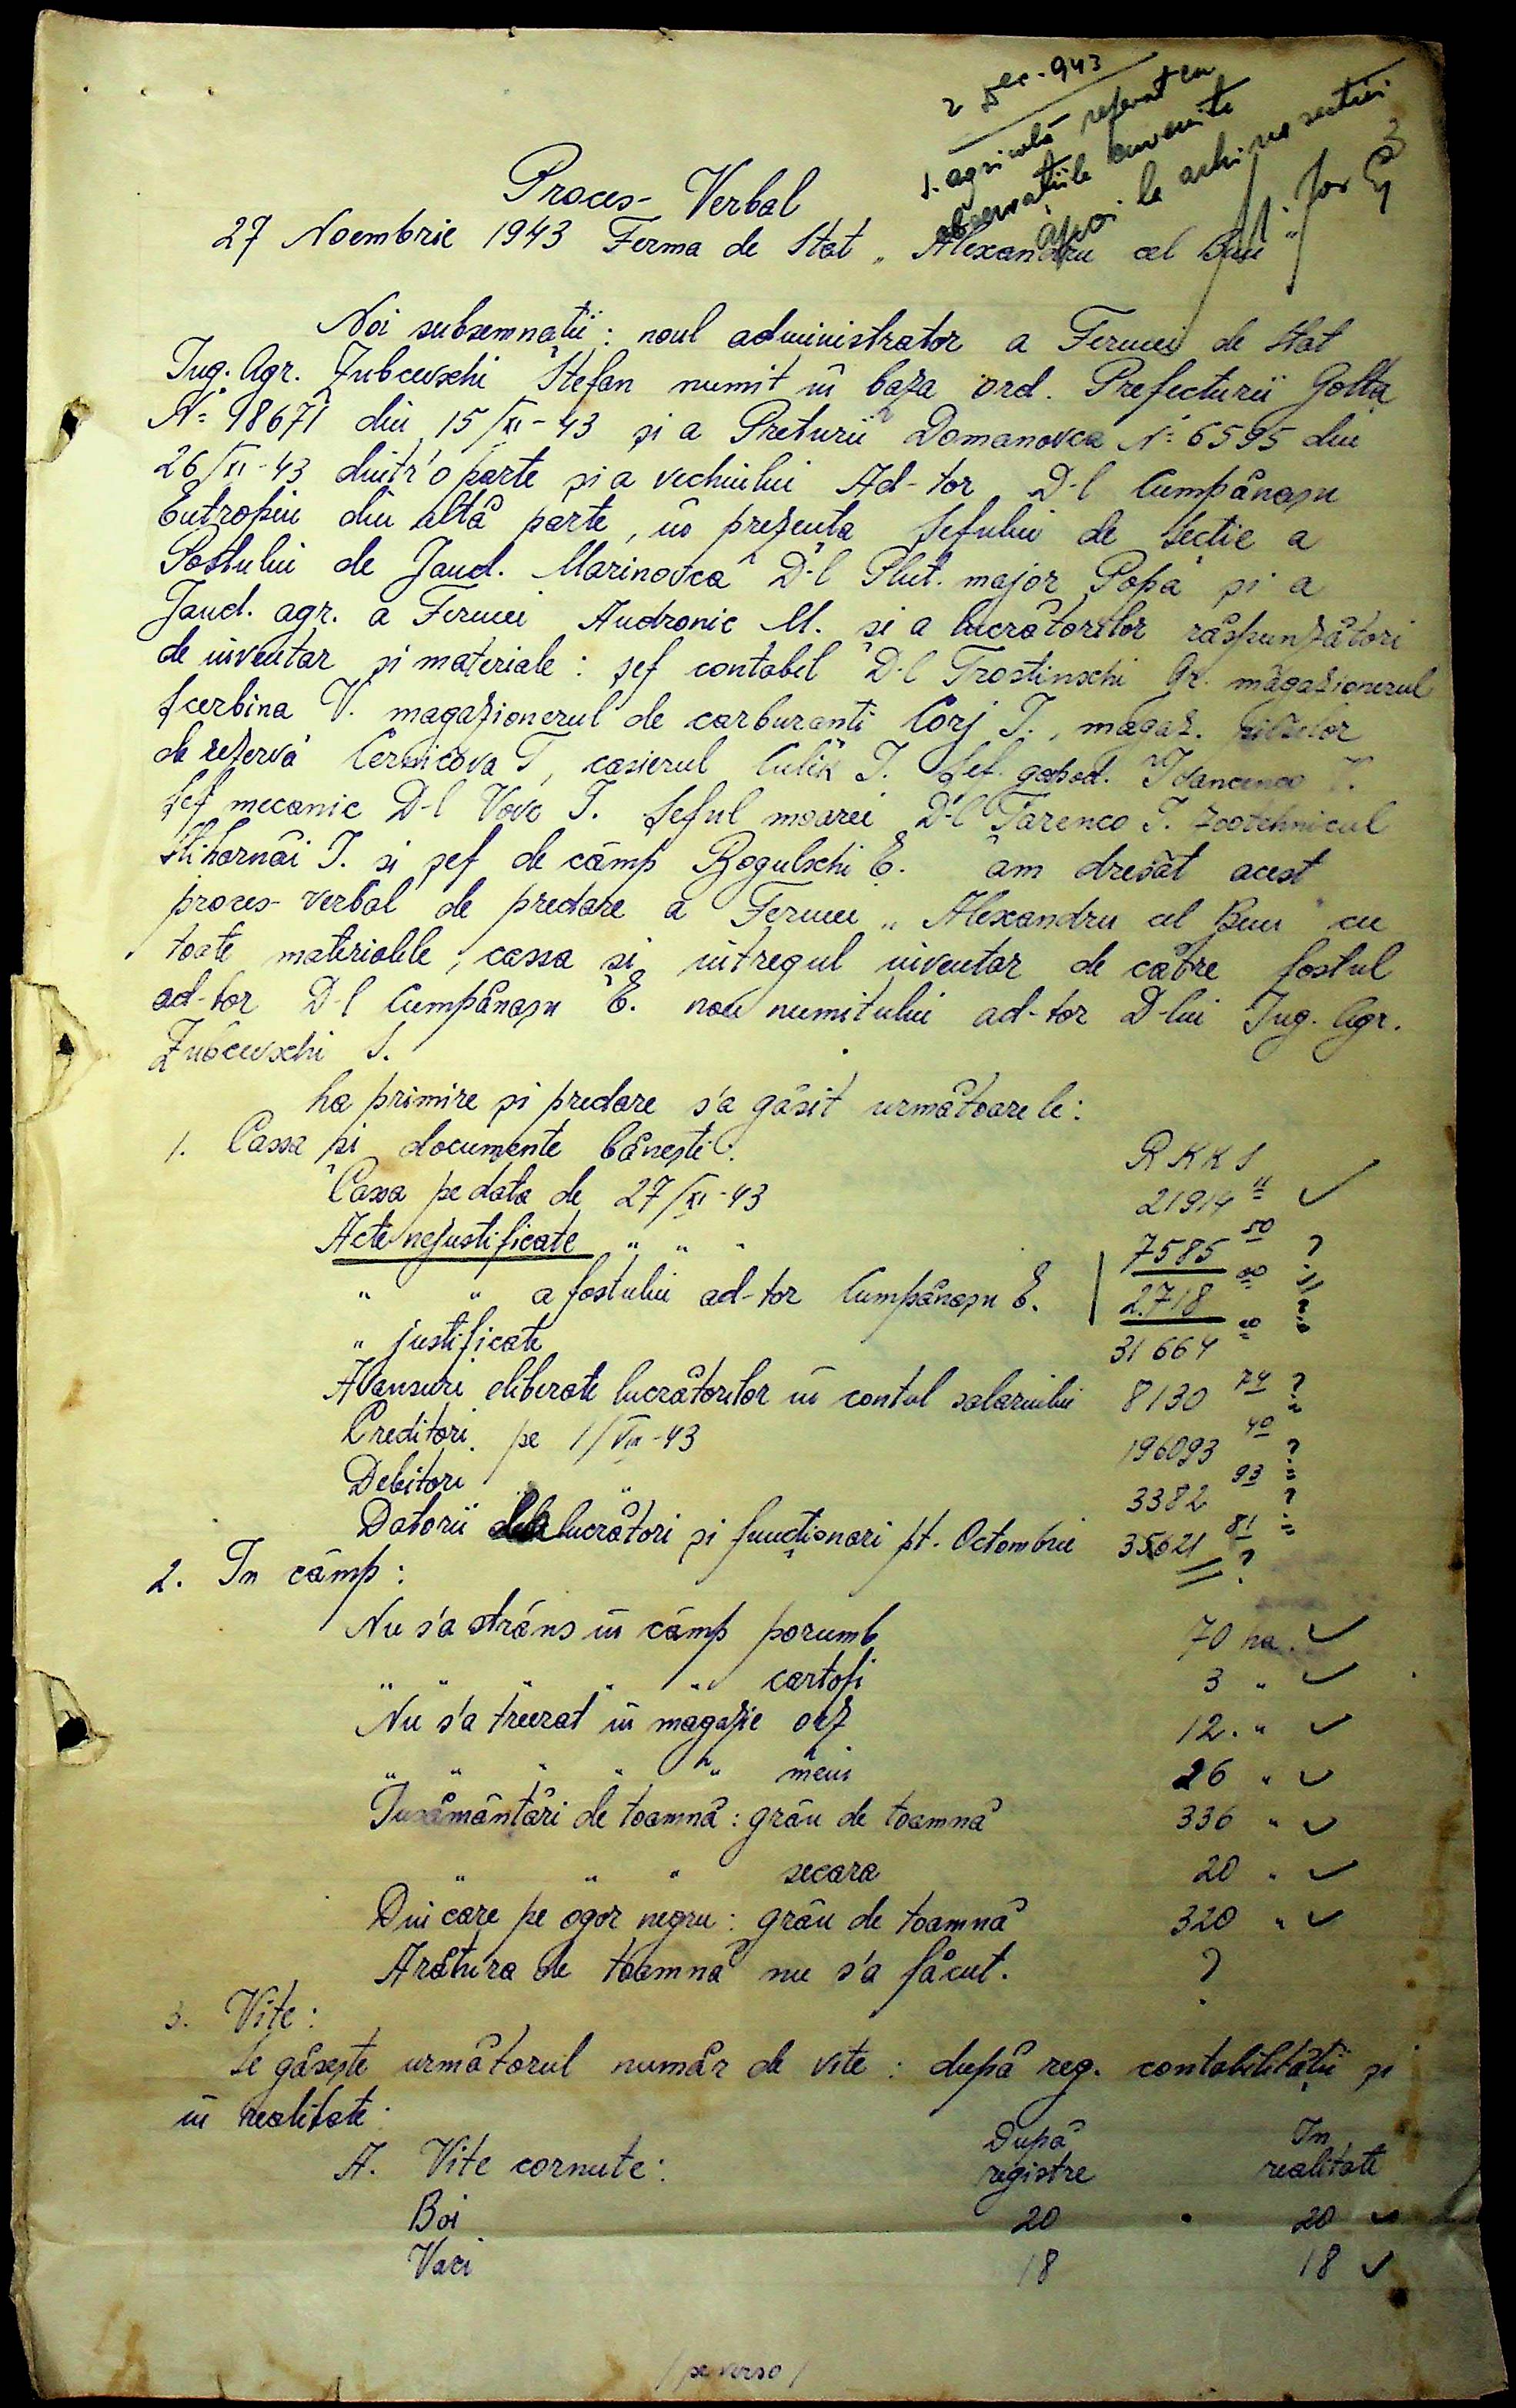 2 Dec. 943
s. agricolă referat cu
observațiile cuvenite
apoi la
Proces-Verbal
27 Noembrie 1943 Ferma de Stat „Alexandru cel Bun"
Noi subsemnații: noul administrator a Fermei de Stat
Ing. Agr. Zubcevschi Ștefan numit în baza ord. Prefecturii Golta
№ 98671 din 15/XI-43 și a Preturii Domanovca № 6595 din
26/XI-43 dintr'o parte și a vechiului Ad-tor D-l Cumpănașu
Eutropiu din altă parte, în prezența Șefului de Secție a
Postului de Jand. Marinovca D-l Plut. major Popa și a
Jand. agr. a Fermei Andronic M. și a lucrătorilor răspunzători
de inventar și materiale: șef contabil D-l Trostinschi Gr. magazionerul
Scerbina V. magazionerul de carburanti Corj I., magaz.
de rezervă Cernicova T, casierul Culik I. Șef. gospod.
Șef mecanic D-l Vovc I. Șeful moarei D-l Tarenco I. Zootehnicul
I. si șef de câmp Rogulschi E. am dresat acest
proces-verbal de predare a Fermei „Alexandru cel Bun" cu
toate materialele, cassa și intregul inventar de către fostul
ad-tor D-l Cumpănașu E. nou numitului ad-tor D-lui Ing. Agr.
Zubcevschi S.
La primire și predare s'a găsit următoarele:
1. Cassa și documente bănești: RKKS
Cassa pe data de 27/XI-43 21914 11 ✓
Acte nejustificate " " " 7585 50 ?
" " a fostului ad-tor Cumpănașu E. 2.718 00 ?
" justificate 31664 20
Avansuri eliberate lucrătorilor în contul salariului 8130 74 ?
Creditori pe 1/VIII-43 196093 40 ?
Debitori " " 3382 93 ?
Datorii lucrători și funcționari pt. Octombrie 35621 81 ?
2. In câmp:
Nu s'a strâns în câmp porumb 70 ha. ✓
" " " " " cartofi 3 " ✓
Nu s'a treerat în magazie orz 12. " ✓
" " " " " meiu 26 " ✓
Insămânțări de toamnă: grâu de toamnă 336 " ✓
" " " secara 20 " ✓
Din care pe ogor negru: grâu de toamnă 320 " ✓
Arătura de toamnă nu s'a făcut. ?
3. Vite:
Se găsește următorul număr de vite: după reg. contabilității și
în realitate:
A. Vite cornute: După registre In realitate
Boi 20 20 ✓
Vaci 18 18 ✓
/ pe verso /